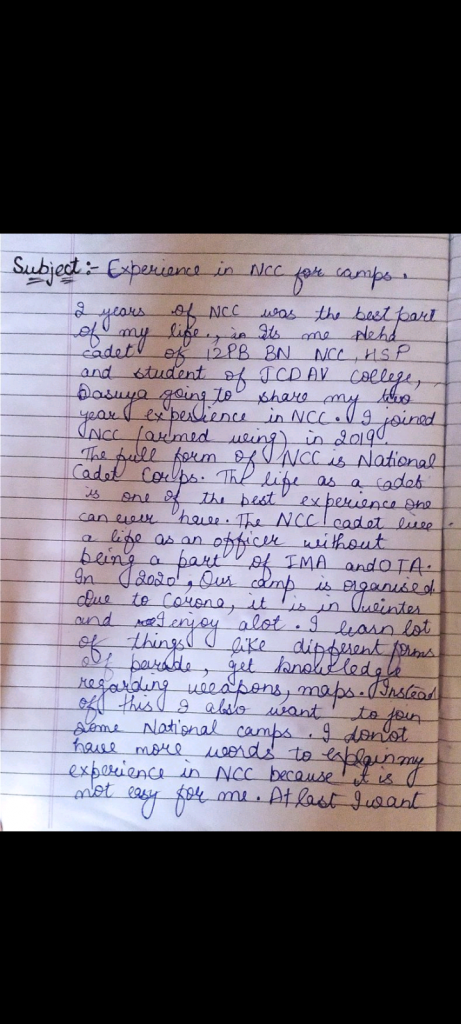 Subject :- Experience in NCC for camps.
2 years of NCC was the best part
of my life., in Its me Neha
cadet of 12PB BN NCC, HSP
and student of JCDAV College,
Dasuya going to share my two
year experience in NCC. I joined
NCC (armed wing) in 2019
The full form of NCC is National
Cadet Corps. The life as a cadet
is one of the best experience one
can ever have. The NCC cadet live
a life as an officer without
being a part of IMA and OTA.
In 2020, Our camp is organised
due to Corona, it is in winter
and I enjoy alot. I learn lot
of things like different forms
of parade, get knowledge
regarding weapons, maps. Instead
of this I also want to join
some National camps. I donot
have more words to explain my
experience in NCC because it is
not easy for me. At last I want